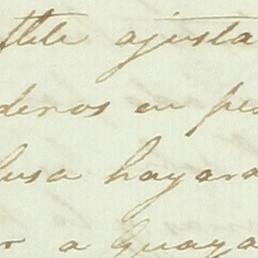 flete ajusta
deros en pes
lusa hayara
r a Guaya